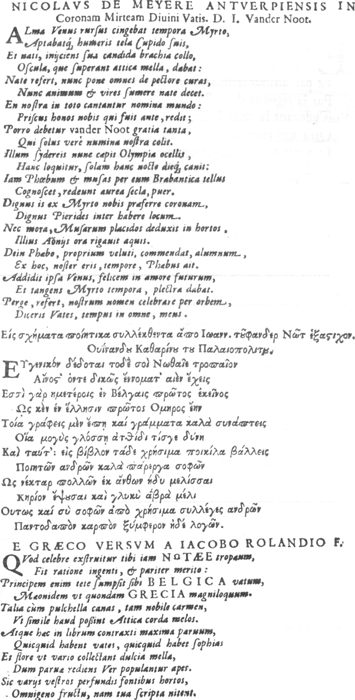 NICOLAVS DE MEYERE ANTVERPIENSIS IN
Coronam Mirteam Diuini Vatis. D. I. Vander Noot.
ALma Venus rursus cingebat tempora Myrto,
Aptabatq; humeris tela Cupido suis,
Et nati, injiciens sua candida brachia collo,
Oscula, quæ superant attica mella, dabat:
Nate refert, nunc pone omnes de pectore curas,
Nunc animum & vires sumere nate decet.
En nostra in toto cantantur nomina mundo:
Priscus honos nobis qui fuit ante, redit;
Porro debetur vander Noot gratia tanta,
Qui solus verè numina nostra colit.
Illum sydereis nunc capit Olympia ocellis,
Hanc loquitur, solam hanc nocte dieq; canit:
Iam Phœbum & musas per eum Brabantica tellus
Cognoscet, redeunt aurea secla, puer.
Dignus is ex Myrto nobis præferre coronam,
Dignus Pierides inter habere locum.
Nec mora, Musarum placidos deduxit in hortos,
Illius Aonijs ora rigauit aquis.
Dein Phœbo, proprium veluti, commendat, alumnum,
Ex hoc, noster eris, tempore, Phœbus ait.
Addidit ipsa Venus, felicem in amore futurum,
Et tangens Myrto tempora, plectra dabat.
Perge, refert, nostrum nomen celebrare per orbem,
Diceris Vates, tempus in omne, meus.
Εἰς σχήματα ποιητικὰ συλλεχθέντα ἀπὸ Ἰωανν. τȣ̃φανδερ Νὼτ ἑξάστιχον.
Οὐϊτάνδȣ Καθαρίνȣ τȣ̃ Παλαιοπολίτȣ.
ΕΥγενικὸν δέδοται τόδε σοὶ Νωθαῖε τροπαῖον
Αἶνος ὅντε δικῶς ἔννοματ' αἰὲν ἔχεις
Ἐσσὶ γὰρ ἡμετέροις ἐν Βέλγαις πρῶτος ἐκεῖνος
Ὡς κεν ἐν ἕλλησιν πρῶτος Ὅμηρος ἔην
Τοῖα γράφεις μὲν ἔπη καὶ γράμματα καλὰ συνάπτεις
Οἷα μογὺς γλόσση ἀτθίδι τίσγε δύνῃ
Καὶ ταῦτ' εἰς βίβλον τάδε χρήσιμα ποικίλα βάλλεις
Ποιητῶν ἀνδρῶν καλὰ πάρεργα σοφῶν
Ὡς νέκταρ πολλῶν ἐκ ἀνθων ἡδὺ μελίσσαι
Κηρίον ἕψουσαι καὶ γλυκὺ ἁβρὰ μέλι
Οὕτως καὶ σὺ σοφῶν ἀπὸ χρήσιμα συλλέγες ἀνδρῶν
Παντοδαπὸν καρπὸν ξύμφερον ἠδὲ λογῶν.
E GRÆCO VERSVM A IACOBO ROLANDIO F.
QVod celebre exstruitur tibi iam NOTÆE tropæum,
Fit ratione ingenti, & pariter merito:
Principem enim tete sumpsit sibi BELGICA vatum,
Mæonidem vt quondam GRECIA magniloquum.
Talia cùm pulchella canas, tam nobile carmen,
Vt simile haud possint Attica corda melos.
Atque hæc in librum contraxti maxima paruum,
Quicquid habent vates, quicquid habet sophias
Et flore vt vario collectant dulcia mella,
Dum parua rediens Ver populantur apes.
Sic varys vestros perfundis fontibus hortos,
Omnigeno fructu, nam tua scripta nitent.